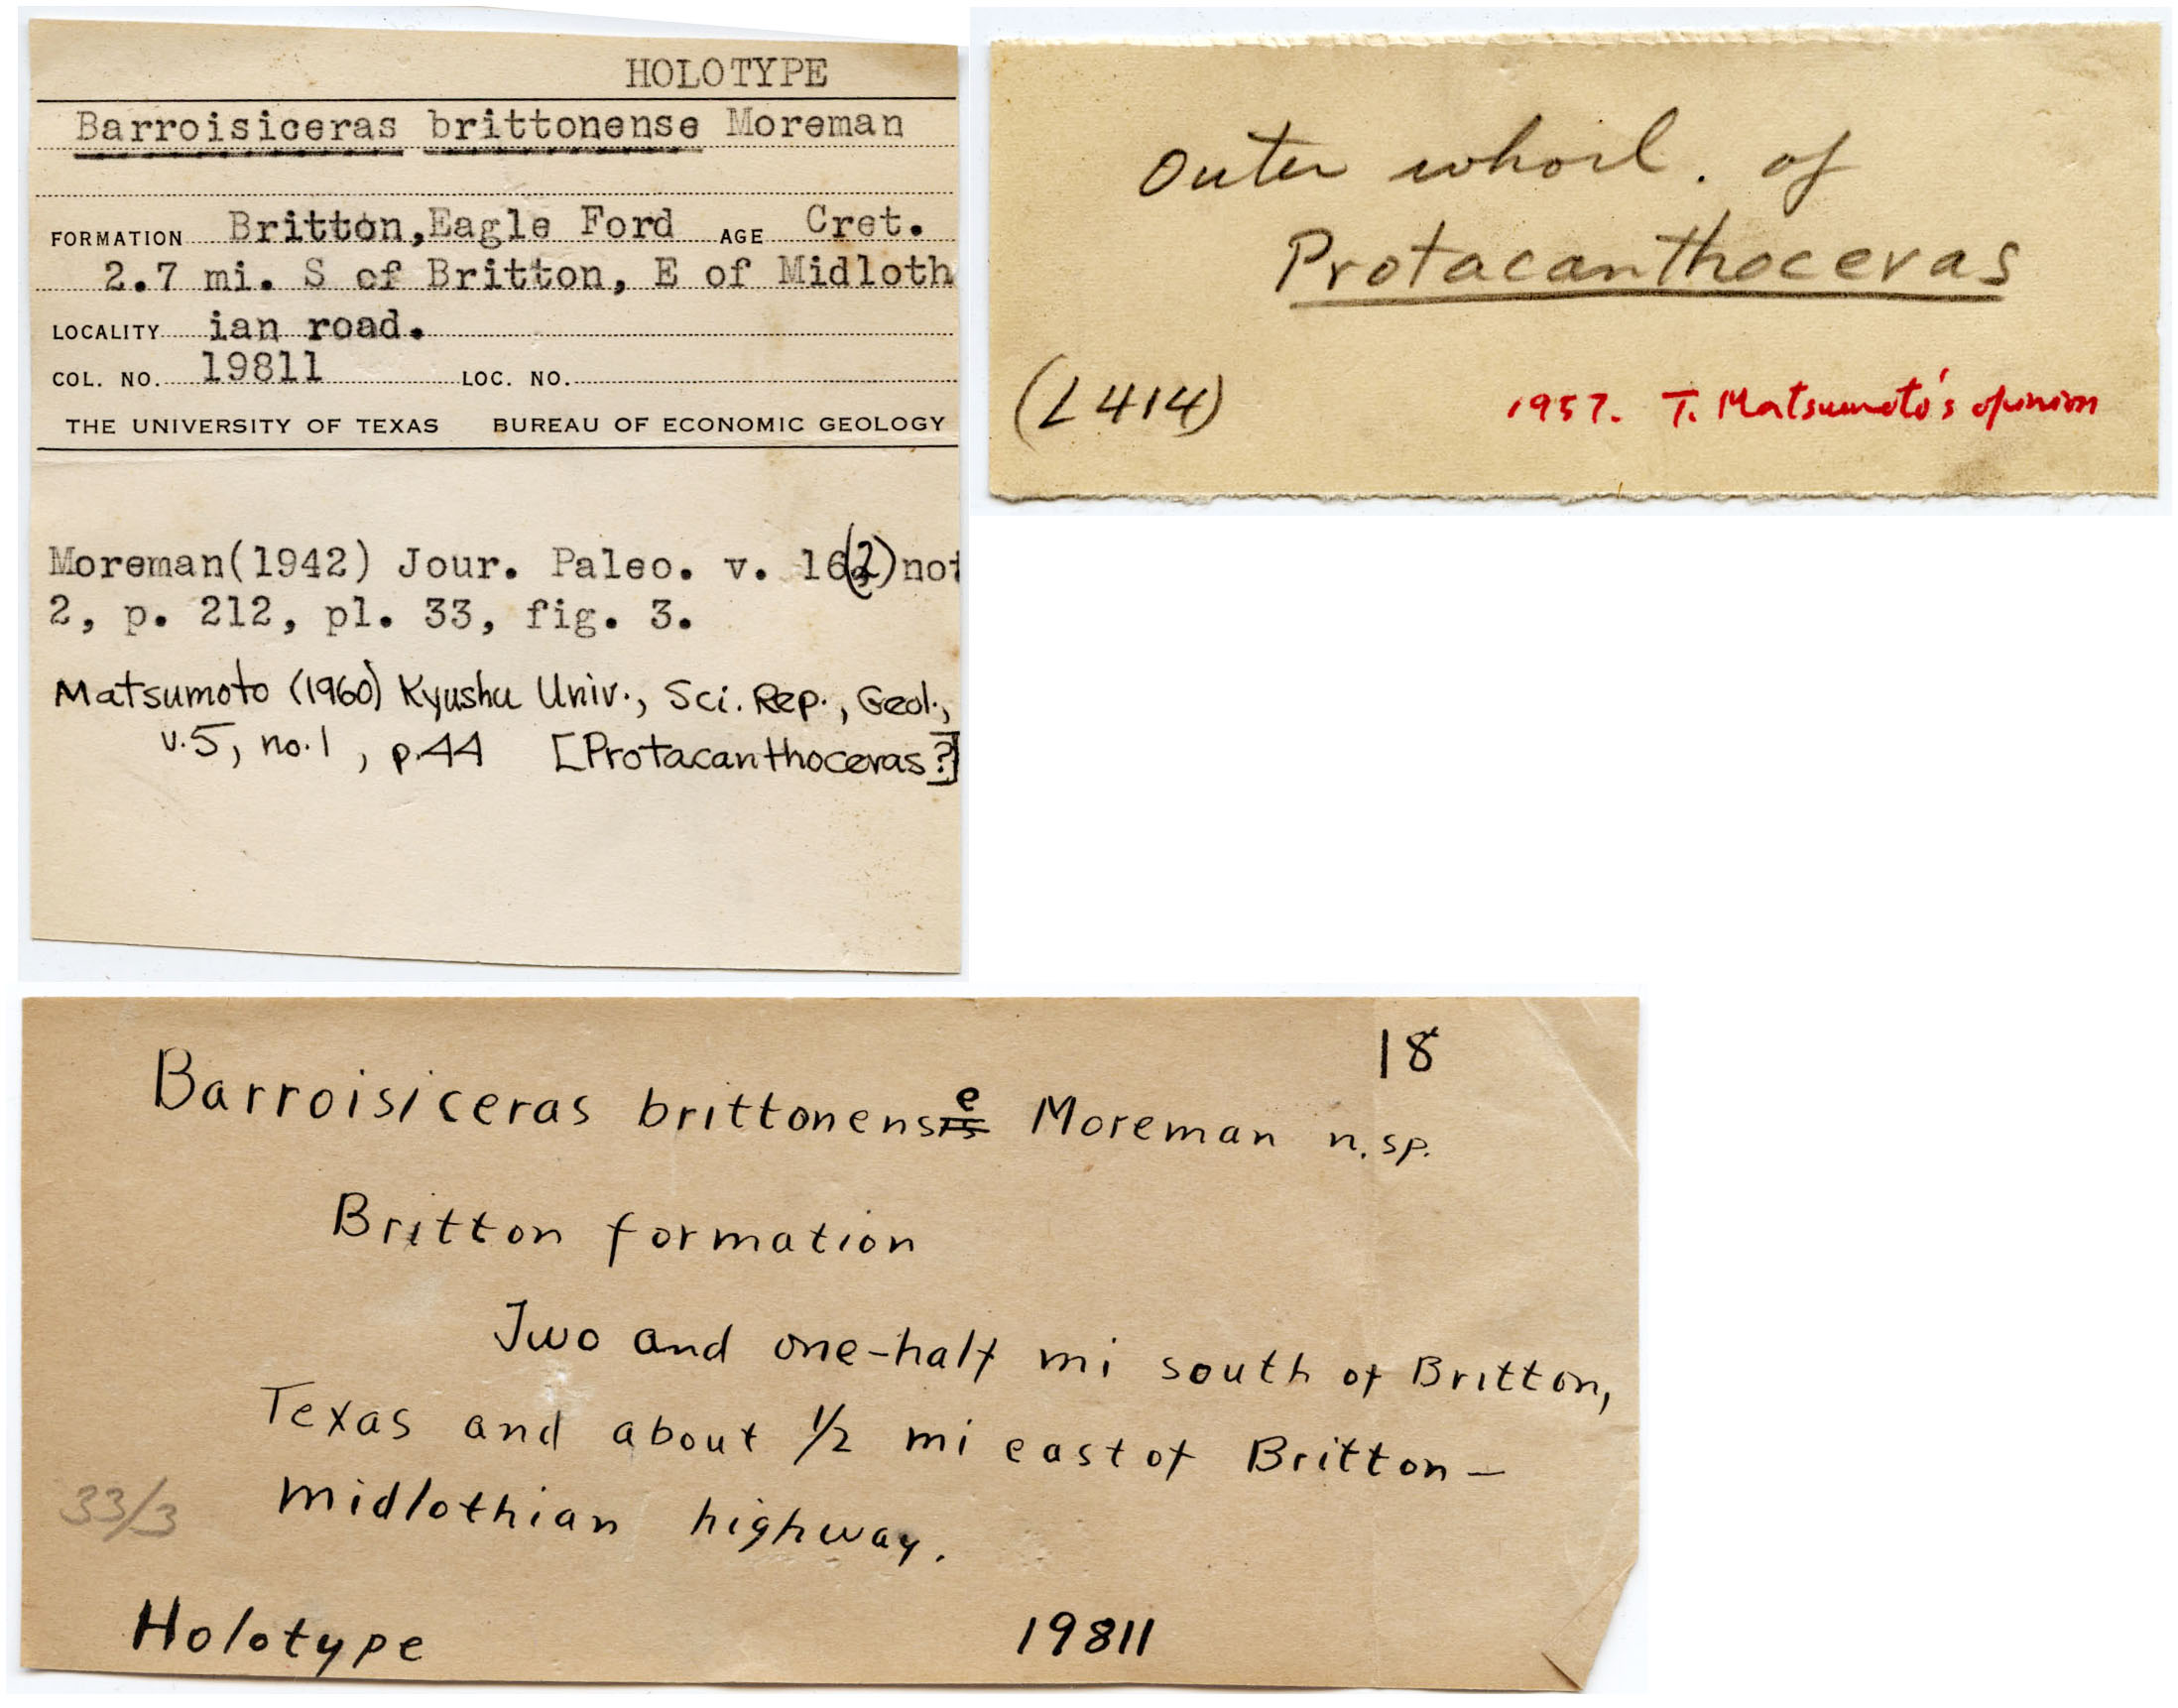 HOLOTYPE
Barroisiceras brittonense Moreman
FORMATION Britton,Eagle Ford AGE Cret.
2.7 mi. S of Britton, E of Midloth
LOCALITY ian road.
COL. NO. 19811 LOC. NO.
THE UNIVERSITY OF TEXAS BUREAU OF ECONOMIC GEOLOGY
Moreman(1942) Jour. Paleo. v. 16(2)not
2, p. 212, pl. 33, fig. 3.
Matsumoto (1960) Kyushu Univ., Sci. Rep., Geol.,
v.5, no.1, p.44 [Protacanthoceras?]
Outer whorl. of
Protacanthoceras
(L414) 1957. T. Matsumoto's opinion
18
Barroisiceras brittonense Moreman n.sp.
Britton formation
Two and one-half mi south of Britton,
Texas and about 1/2 mi east of Britton-
Midlothian highway.
33/3
Holotype 19811